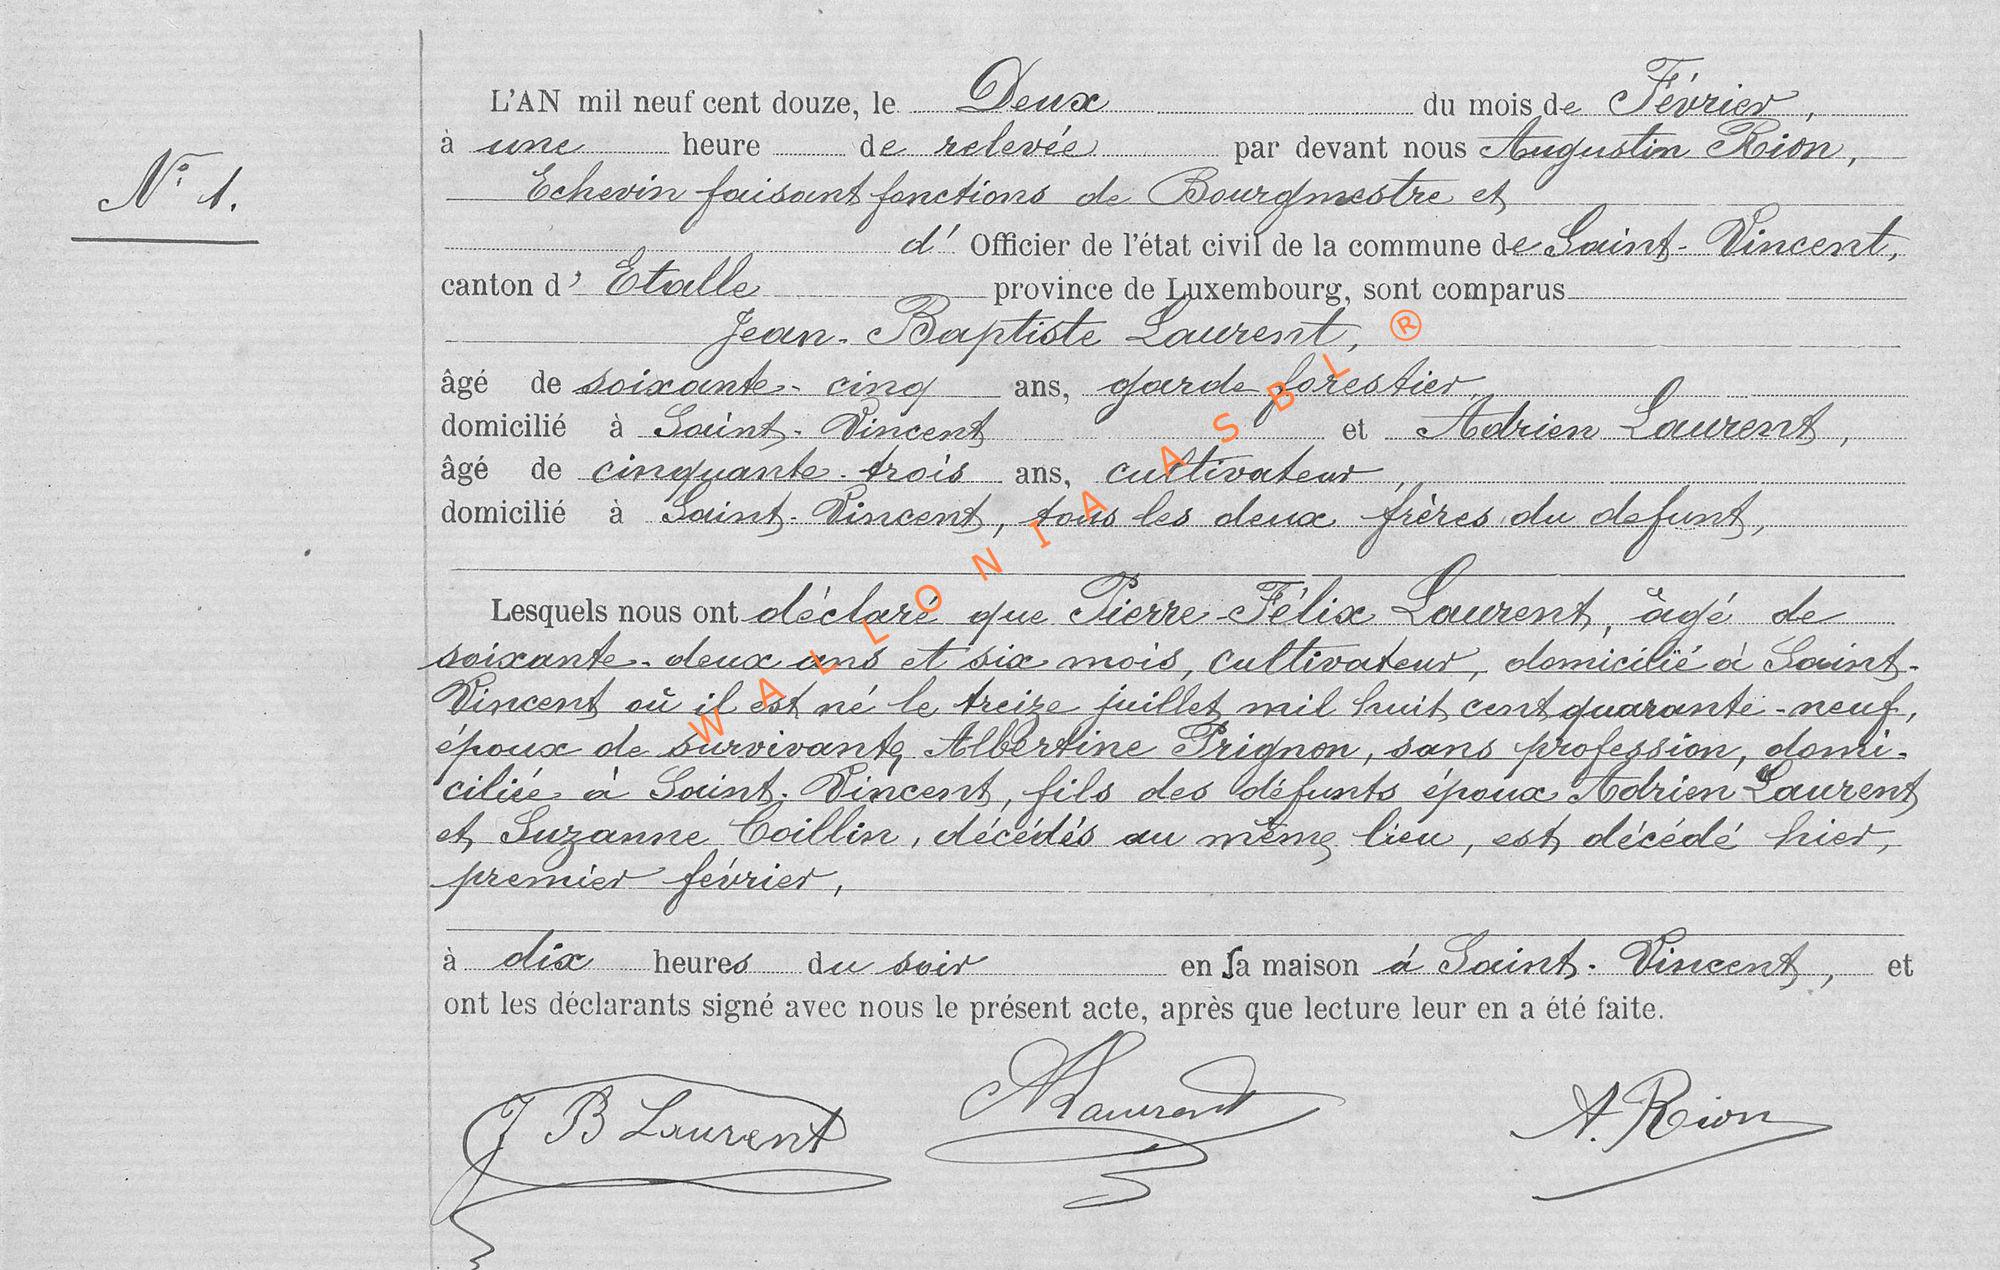 N° 1.
L'AN mil neuf cent douze, le Deux du mois de Février,
à une heure de relevée par devant nous Augustin Rion,
Echevin faisant fonctions de Bourgmestre et
d' Officier de l'état civil de la commune de Saint-Vincent,
canton d' Etalle province de Luxembourg, sont comparus
Jean-Baptiste Laurent,
âgé de soixante-cinq ans, garde forestier,
domicilié à Saint-Vincent et Adrien Laurent,
âgé de cinquante-trois ans, cultivateur,
domicilié à Saint-Vincent, tous les deux frères du defunt,
Lesquels nous ont déclaré que Pierre-Félix Laurent, âgé de
soixante-deux ans et six mois, cultivateur, domicilié à Saint-
Vincent où il est né le treize juillet mil huit cent quarante-neuf,
époux de survivante Albertine Prignon, sans profession, domi-
ciliée à Saint-Vincent, fils des défunts époux Adrien Laurent
et Suzanne Coillin, décédés au même lieu, est décédé hier,
premier février,
à dix heures du soir en sa maison à Saint-Vincent, et
ont les déclarants signé avec nous le présent acte, après que lecture leur en a été faite.
J B Laurent ALaurent A. Rion
WALLONIA ASBL ®